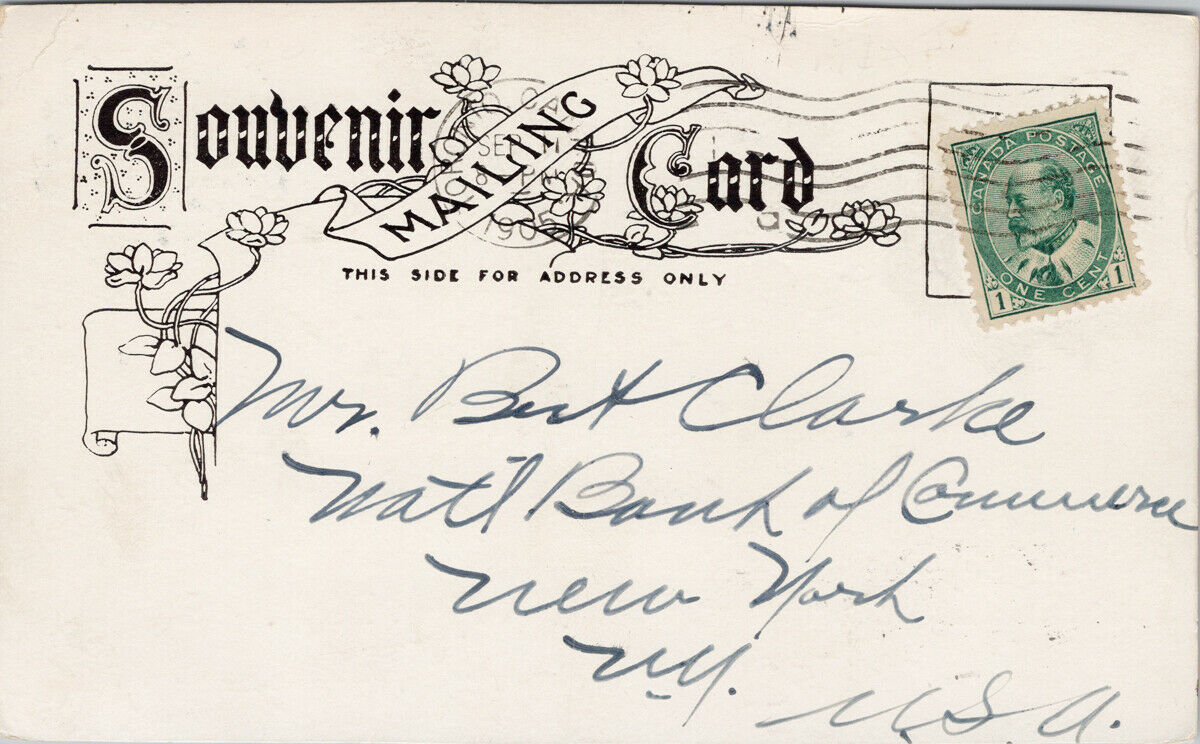 Souvenir MAILING Card
THIS SIDE FOR ADDRESS ONLY
SEP
1905
CANADA POSTAGE
ONE CENT
1 1
Mr. Bert Clarke
Nat'l Bank of Commerce
New York
N.Y.
U.S.A.